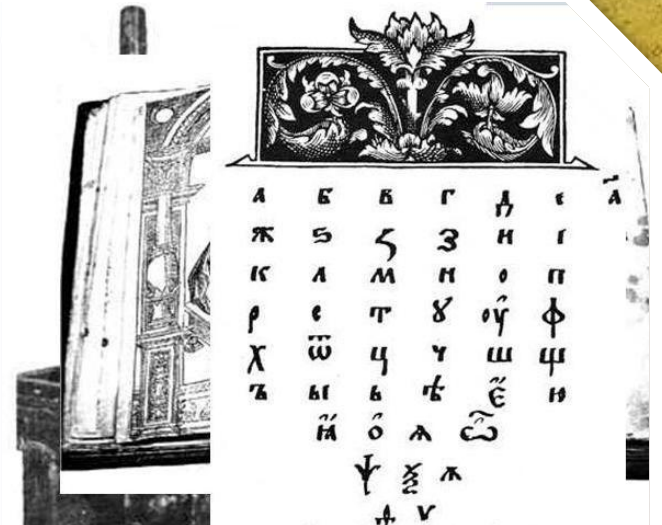 а б в г д є а҆
ж ѕ ꙁ з и і
к л м н о п
р с т ꙋ оу҆ ф
х ѿ ц ч ш щ
ъ ы ь ѣ є҆ ю
ꙗ҆ о҆ ѧ ѽ
ѱ ѯ ѧ
ѵ